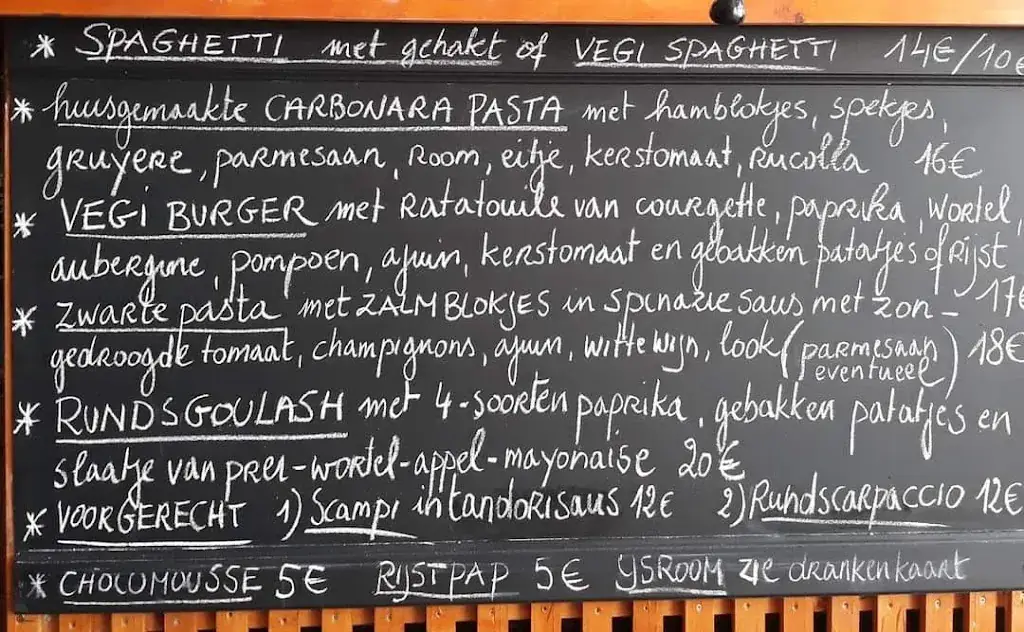 * SPAGHETTI met gehakt of VEGI SPAGHETTI 14€/10€
* huusgemaakte CARBONARA PASTA met hamblokjes, spekjes,
gruyere, parmesaan, room, eitje, kerstomaat, rucolla 16€
* VEGI BURGER met Ratatouile van courgette, paprika, wortel,
aubergine, pompoen, ajuin, kerstomaat en gebakken patatjes of rijst
* zwarte pasta met ZALMBLOKJES in Spinazie Saus met zon- 17€
gedroogde tomaat, champignons, ajuin, witte wijn, look (parmesaan eventueel) 18€
* RUNDSGOULASH met 4-soorten paprika, gebakken patatjes en
slaatje van prei-wortel-appel-mayonaise 20€
* VOORGERECHT 1) Scampi in tandorisaus 12€ 2) Rundscarpaccio 12€
* CHOCOMOUSSE 5€ RIJSTPAP 5€ IJSROOM zie drankenkaart